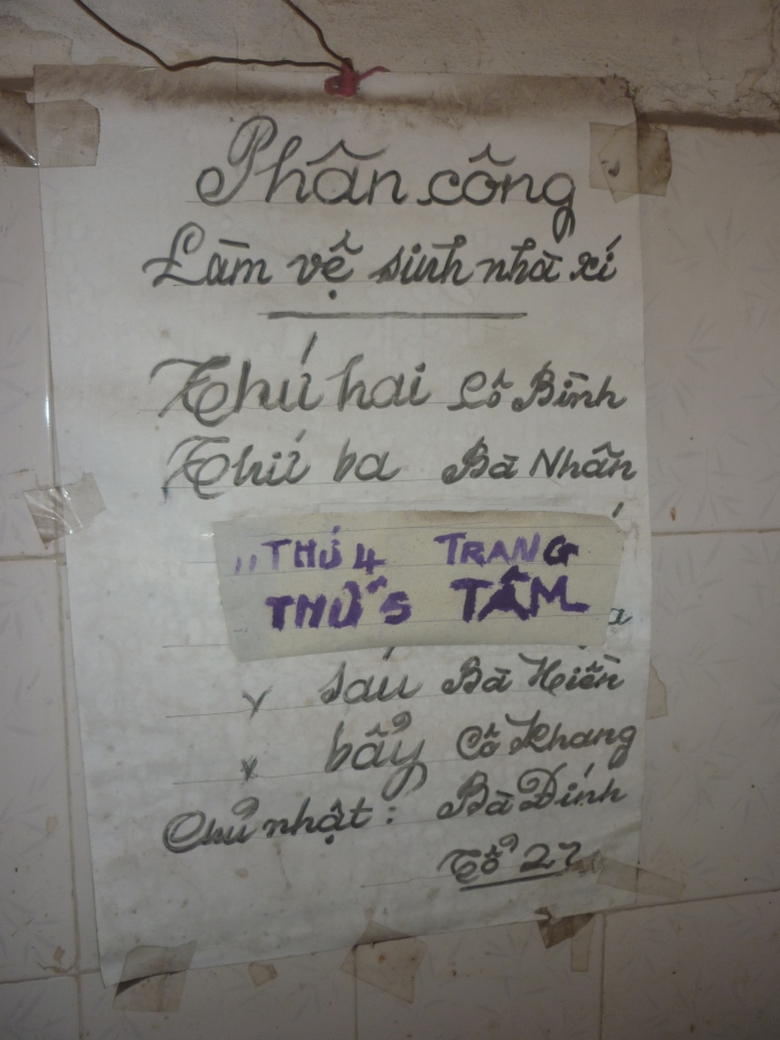 Phân công
Làm vệ sinh nhà xí
Thứ hai Cô Bình
Thứ ba Bà Nhân
,, THỨ 4 TRANG
THỨ 5 TÂM
sáu Bà Hiền
bẩy Cô Khang
Chủ nhật: Bà Đính
Tổ 27